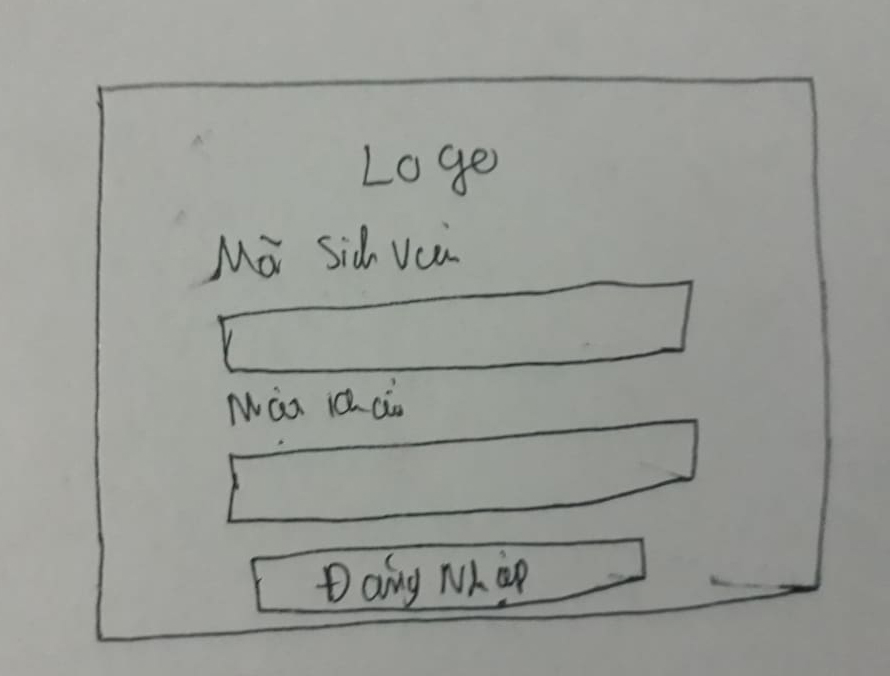 Logo
Mã Sinh Viên
Mật khẩu
Đăng Nhập